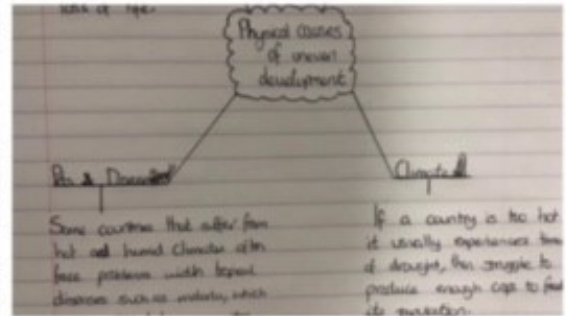 loss of life.
Physical causes
of uneven
development
Climate
Some countries that suffer from
hot and humid climates often
face problems with tropical
diseases such as malaria, which
If a country is too hot
it usually experiences
of drought, then struggle to
produce enough cops to feed
its population.